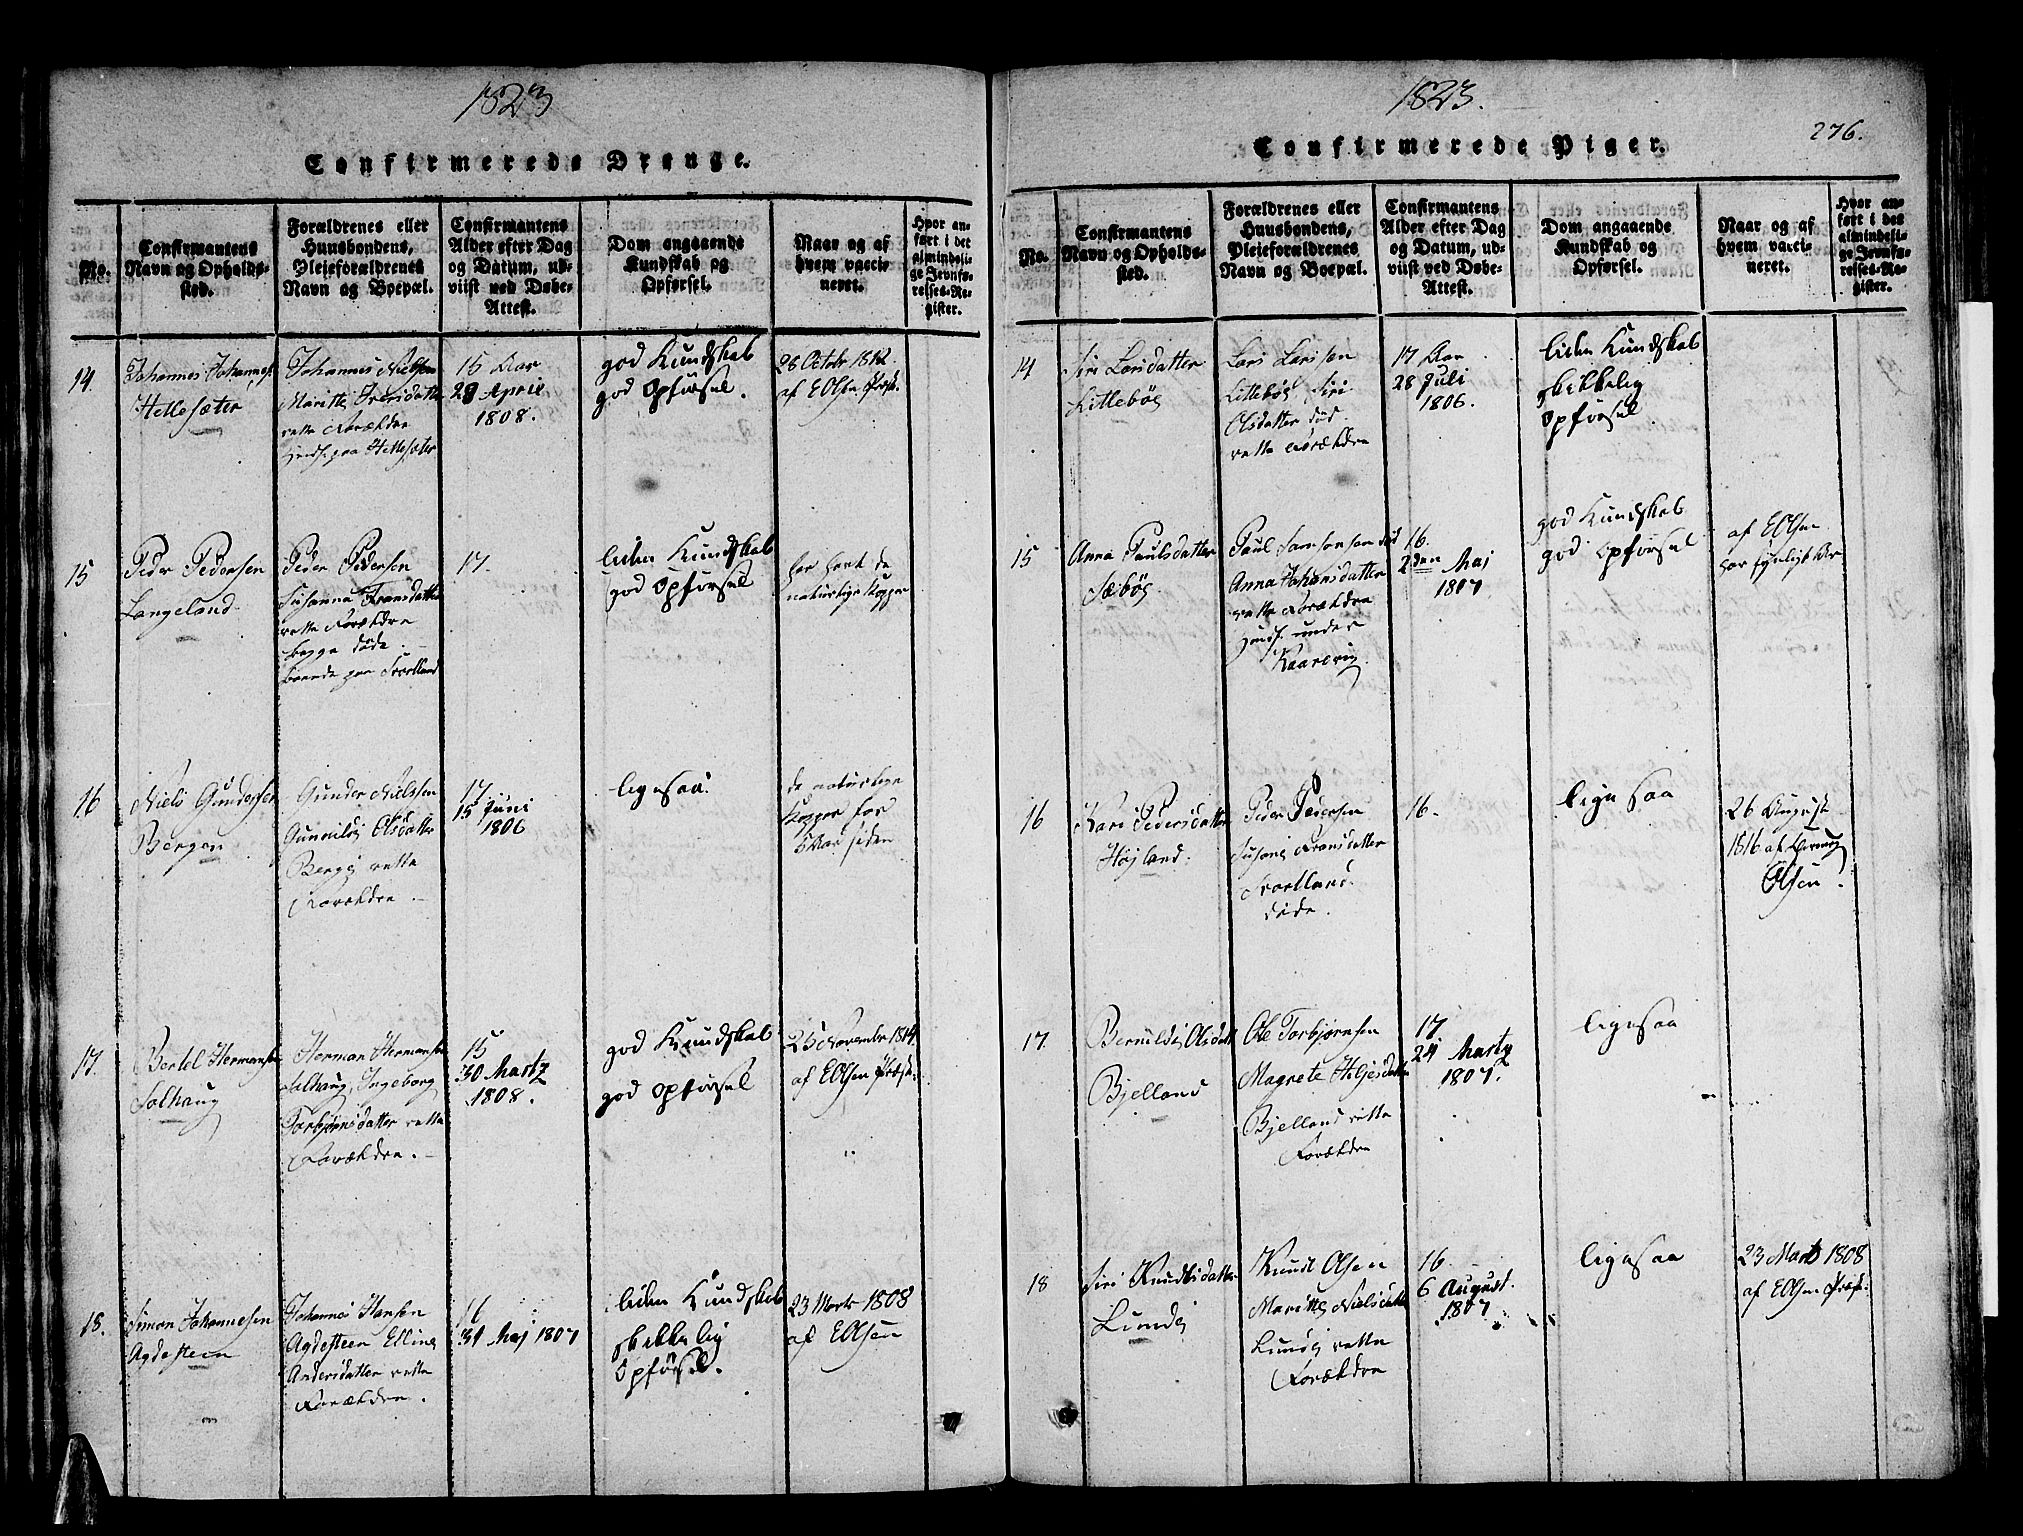 1823
Confirmerede Drenge.
No.
Confirmantens
Navn og Opholds-
sted.
Forældrenes eller
Huusbondens,
Pleieforældrenes
Navn og Boepæl.
Confirmantens
Alder efter Dag
og Datum, ud-
viist ved Døbe-
Attest.
Dom angaaende
Kundskab og
Opførsel.
Naar og af
hvem vacci-
neret.
Hvor an-
ført i det
almindeli-
ge Jevnfø-
relses-Re-
gister.
14
Johannes Johannes.
Hellesæter
Johannes Nielsen
Maritte Iversdatter
rette Forældre
paa Hellesæter
15 Aar
28 April
1808.
god Kundskab
god Opførsel.
28 Octobr 1812
af EOlsen Præst.
15
Peder Pedersen
Langeland
Peder Pedersen
Susanna Fransdatter
rette Forældre
begge døde.
boende paa Svortland
17.
liden Kundskab
god Opførsel
har havt de
naturlige Kopper
16
Niels Gundersen
Bergen
Gunder Nielsen
Gunnilde Olsdatter
Berge rette
Forældre.
17
15 Juni
1806
ligesaa.
de naturlige
Kopper for
5 Aar siden
17.
Bertel Hermansen
Solhaug
Herman Hermansen
Solhaug, Ingeborg
Torbjørnsdatter rette
Forældre.
15
30 Martz
1808.
god Kundskab
god Opførsel
25 November 1814.
af EOlsen Præst.
18.
Simon Johannesen
Agdesteen
Johannes Hansen
Agdesteen Elling
Andersdatter rette
Forældre.
16
31 Maj 1807
liden Kundskab
skikkelig
Opførsel.
23 Marts 1808
af EOlsen
1823.
276.
Confirmerede Piger.
No.
Confirmantens
Navn og Opholds-
sted.
Forældrenes eller
Huusbondens,
Pleieforældrenes
Navn og Boepæl.
Confirmantens
Alder efter Dag
og Datum, ud-
viist ved Døbe-
Attest.
Dom angaaende
Kundskab og
Opførsel.
Naar og af
hvem vacci-
neret.
Hvor an-
ført i det
almindeli-
ge Jevnfø-
relses-Re-
gister.
14
Siri Larsdatter
Littebøe
Lars Larssen
Littebøe, Siri
Olsdatter død
rette Forældre
17 Aar
28 Juli
1806.
liden Kundskab
skikkelig
Opførsel
15
Anna Paulsdatter
Sæbøe
Paul Samsonsen død
Anna Johansdatter
rette Forældre
under
Kaarevig
16.
2den Maj
1807
god Kundskab
god Opførsel
af EOlsen
har synligt Ar
16
Kari Pedersdatter
Højland.
Peder Pedersen
Susane Fransdatter
Svortland.
døde.
16.
ligesaa
26 August
1816 af
Olsen.
17.
Bernilde Olsdatt
Bjelland
Ole Torbjørnsen
Magrete Heljesdatter
Bjelland rette
Forældre
17
24 Martz
1807.
ligesaa
18
Siri Knudsdatter
Lunde
Knud Olsen
Maritte Nielsdatter
Lunde rette
Forældre
16.
6 August.
1807.
ligesaa
23 Marts 1808
af EOlsen Præst.